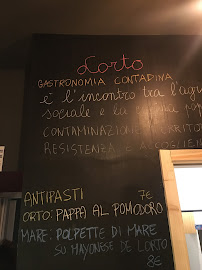 Lorto
GASTRONOMIA CONTADINA
è l'incontro tra l'agri
sociale e la
CONTAMINAZIONE
RESISTENZA E
ANTIPASTI 7€
ORTO: PAPPA AL POMODORO
MARE: POLPETTE DI MARE
SU MAYONESE DE LORTO
8€